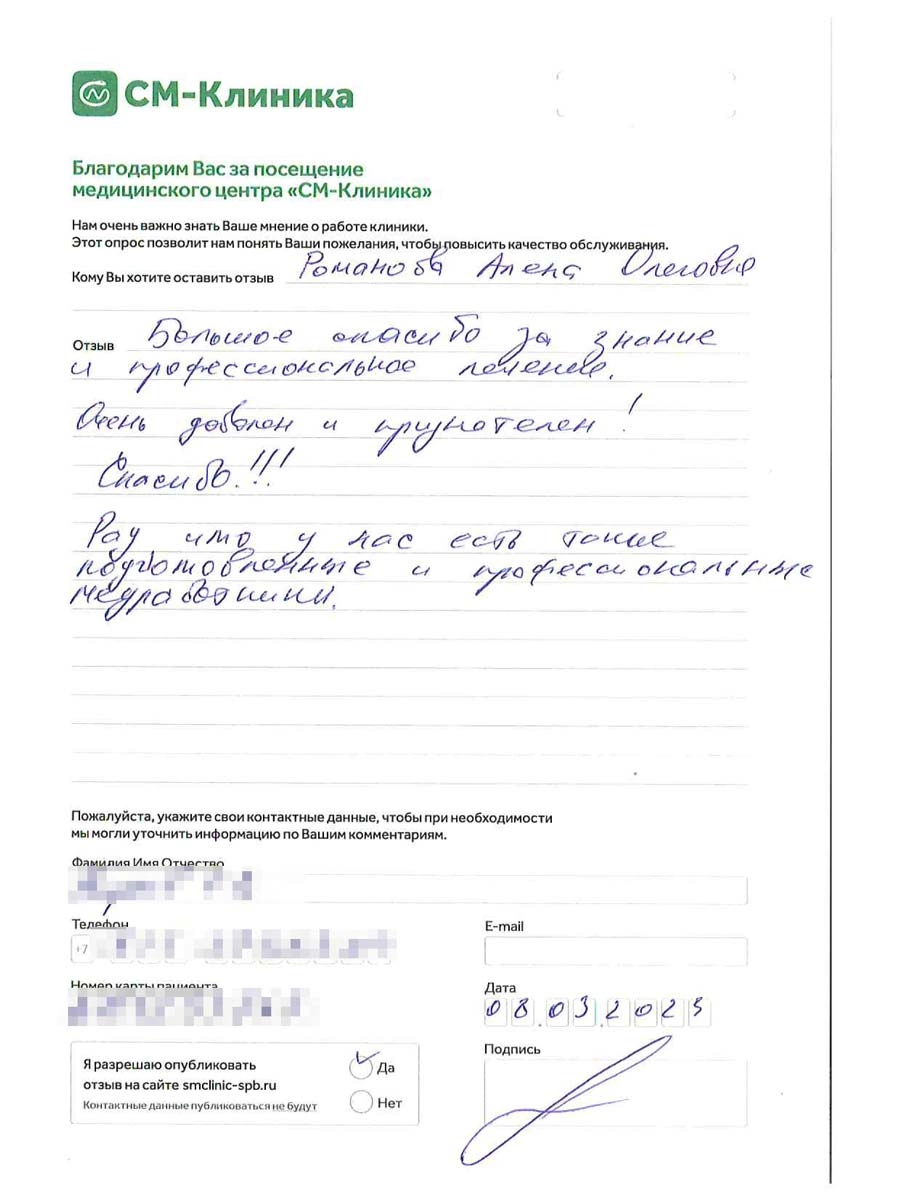 СМ-Клиника
Благодарим Вас за посещение
медицинского центра «СМ-Клиника»
Нам очень важно знать Ваше мнение о работе клиники.
Этот опрос позволит нам понять Ваши пожелания, чтобы повысить качество обслуживания.
Кому Вы хотите оставить отзыв Романова Алена Олеговна
Отзыв Большое спасибо за знание
и профессиональное лечение.
Очень доволен и признателен!
Спасибо!!!
Рад что у нас есть такие
подготовленные и профессиональные
медработники.
Пожалуйста, укажите свои контактные данные, чтобы при необходимости
мы могли уточнить информацию по Вашим комментариям.
Фамилия Имя Отчество
Телефон
E-mail
+7
Номер карты пациента
Дата
08.03.2023
Я разрешаю опубликовать
отзыв на сайте smclinic-spb.ru
Контактные данные публиковаться не будут
Да
Нет
Подпись